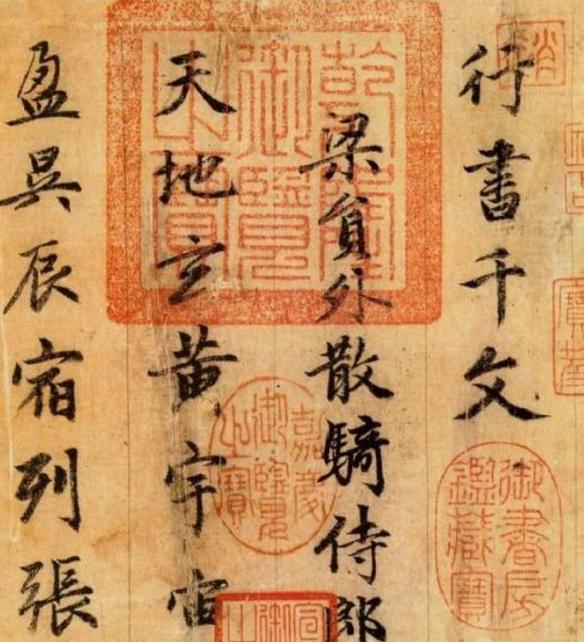 行書千文
梁貟外散騎侍郎
天地玄黄宇宙
盈昃辰宿列張
乾隆御覽之寶
嘉慶御覽之寶
御書房鑑藏寶